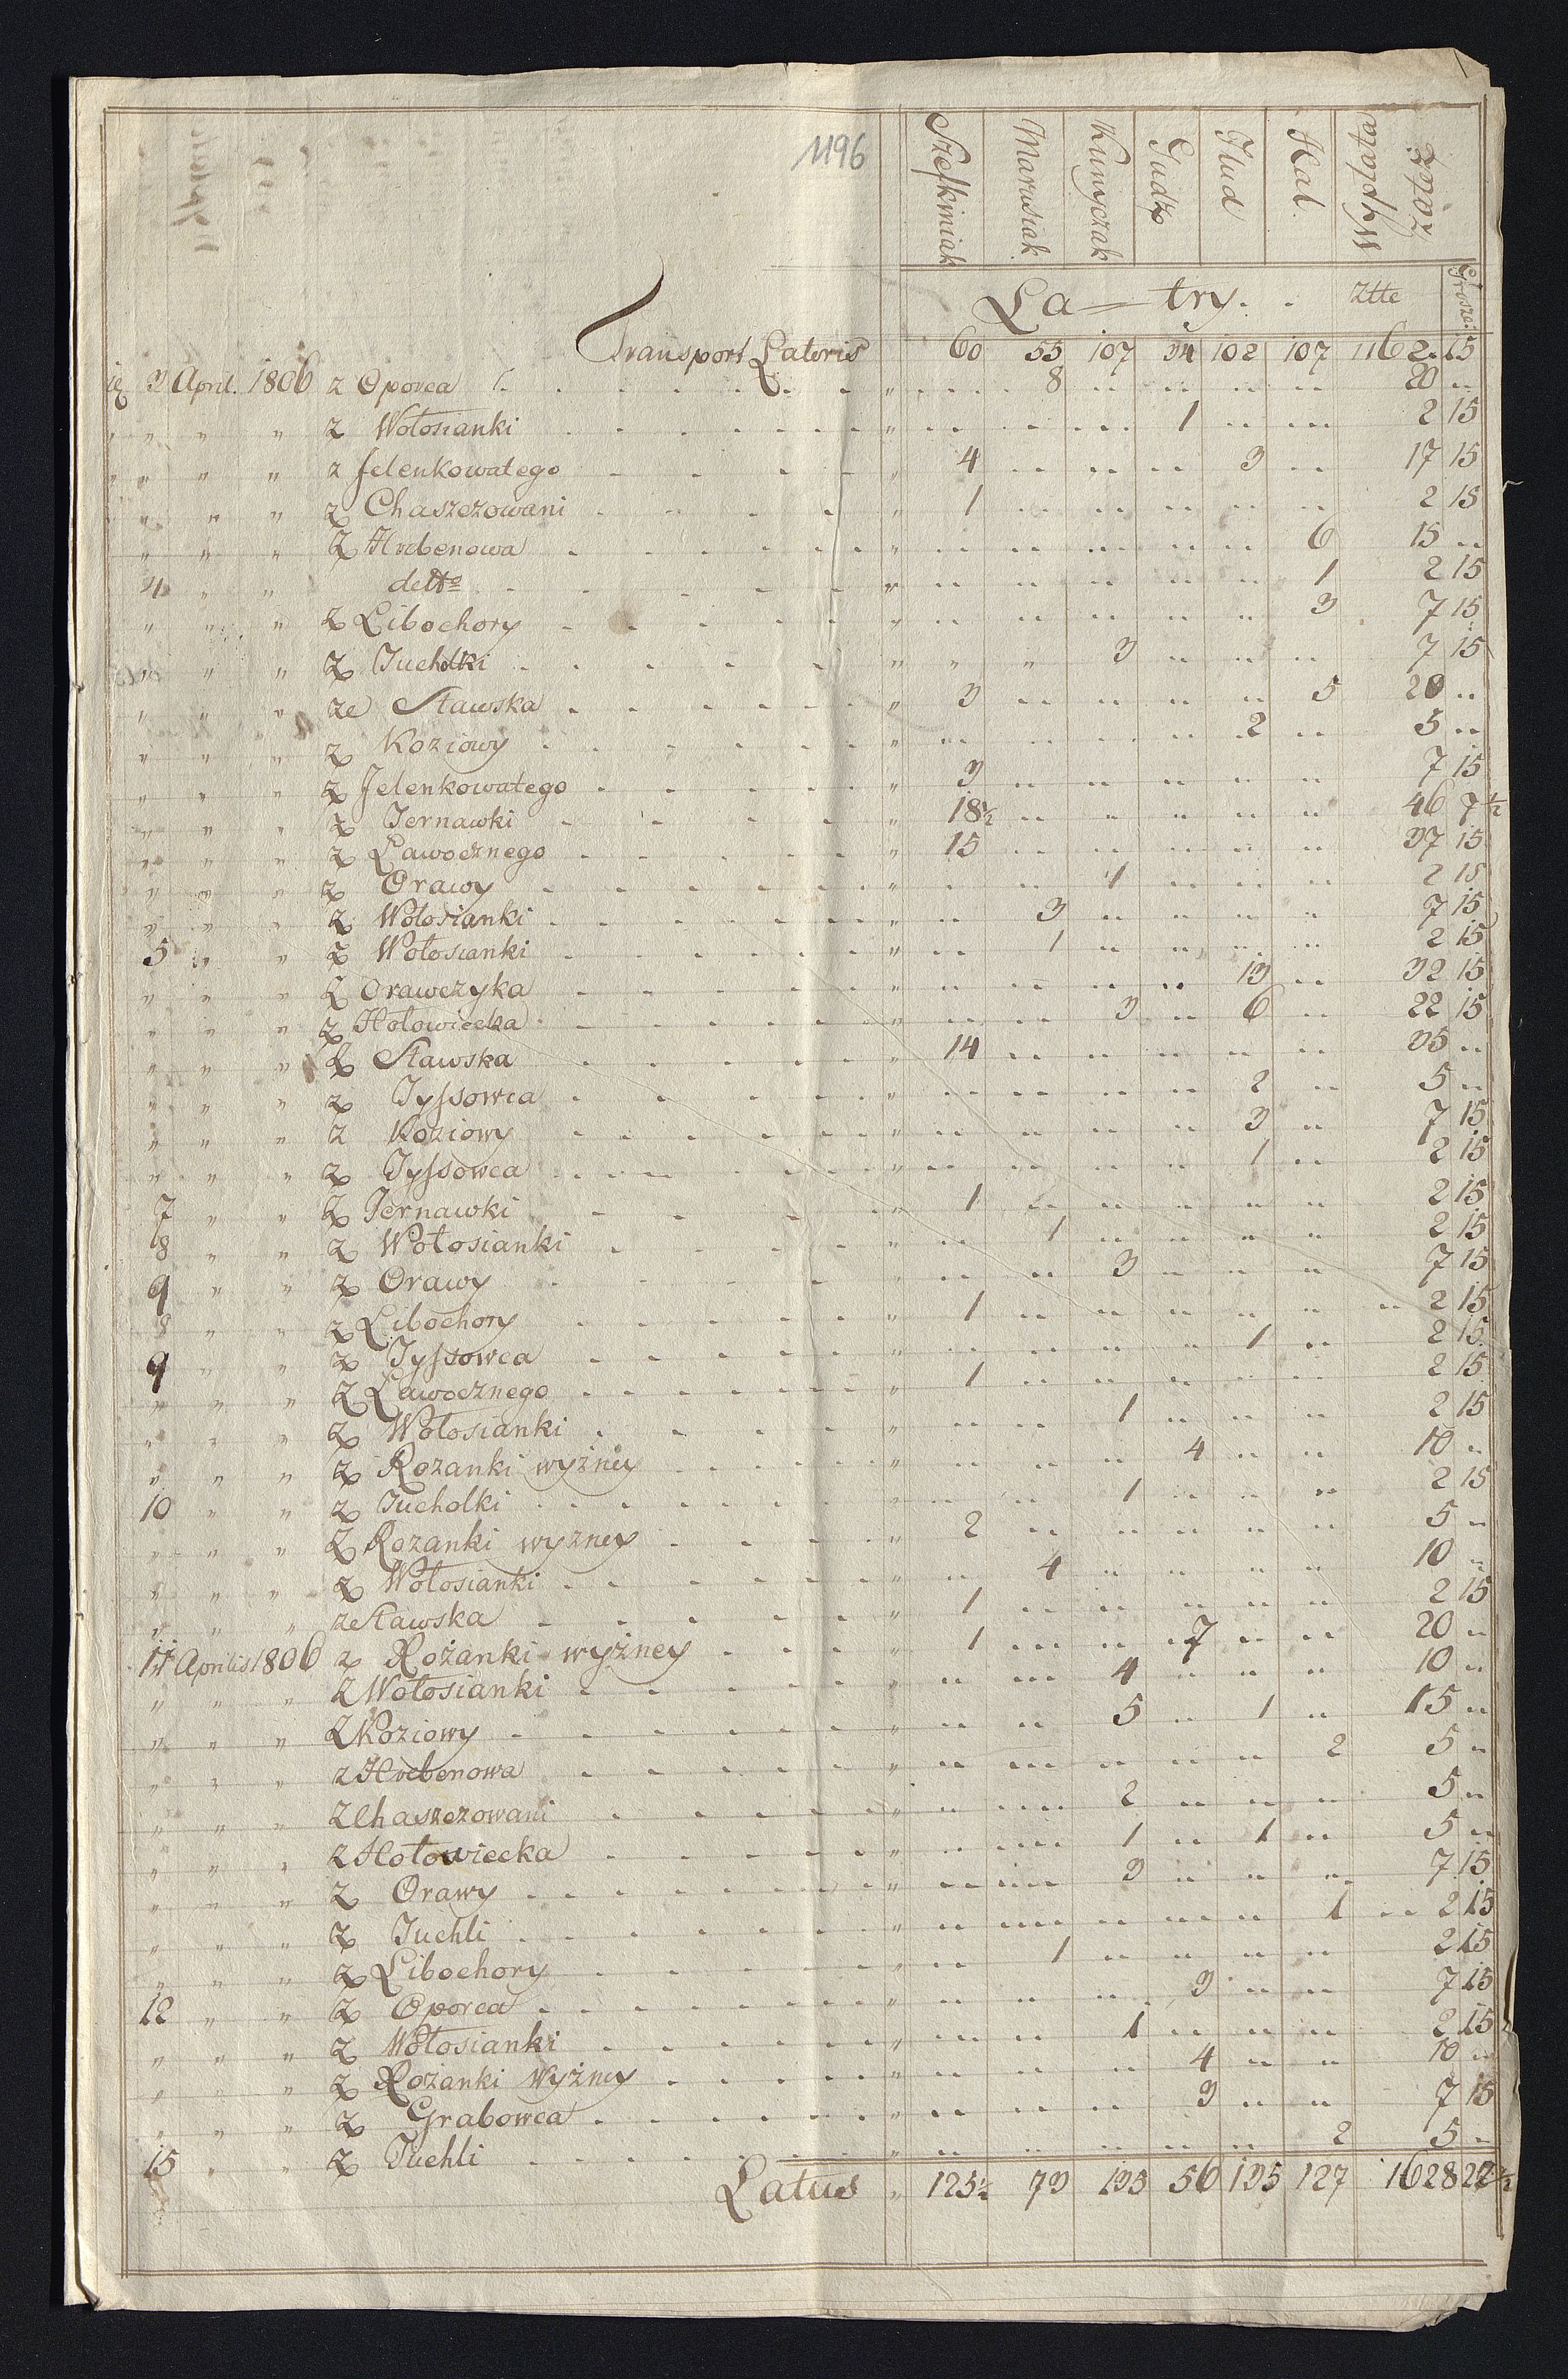 1196
Szeſkiniak Marusiak Kunyczak Gudz Ilud Hal. Wypłata
La—try. ztte Grosze.
Transport Lateris 60 55 107 34 102 107 1162 15
3 April. 1806 z Oporca 8 20 "
" " " z Wołosianki 1 2 15
" " " z Jelenkowatego 4 3 17 15
" " " z Chaszczowani 1 2 15
" " " z Hrebenowa 6 15 "
4 " " detto 1 2 15
" " " z Libochory 3 7 15
" " " z Tucholki 3 7 15
" " " ze Sławska 3 5 20 "
" " " z Koziowy 2 5 "
" " " z Jelenkowatego 3 7 15
" " " z Ternawki 18½ 46 7½
" " " z Ławocznego 15 37 15
" " " z Orawy 1 2 15
" " " z Wołosianki 3 7 15
5 " " z Wołosianki 1 2 15
" " " z Orawczyka 13 32 15
" " " z Hołowiecka 3 6 22 15
" " " z Sławska 14 35 "
" " " z Tyſsowca 2 5 "
" " " z Koziowy 3 7 15
" " " z Tyſsowca 1 2 15
7 " " z Ternawki 1 2 15
8 " " z Wołosianki 1 2 15
9 " " z Orawy 3 7 15
8 " " z Libochory 1 2 15
9 " " z Tyſsowca 1 2 15
" " " z Ławocznego 1 2 15
" " " z Wołosianki 1 2 15
" " " z Rozanki wyżney 4 10 "
10 " " z Tucholki 1 2 15
" " " z Rozanki wyzney 2 5 "
" " " z Wołosianki 4 10 "
" " " ze Sławska 1 2 15
11 Aprilis 1806 z Rożanki wyżney 1 7 20 "
" " " z Wołosianki 4 10 "
" " " z Koziowy 5 1 15 "
" " " z Hrebenowa 2 5 "
" " " z Chaszczowani 2 5 "
" " " z Hołowiecka 1 1 5 "
" " " z Orawy 3 7 15
" " " z Tuchli 1 2 15
" " " z Libochory 1 2 15
12 " " z Oporca 3 7 15
" " " z Wołosianki 1 2 15
" " " z Rożanki Wyżney 4 10 "
" " " z Grabowca 3 7 15
15 " " z Tuchli 2 5 "
Latus 125½ 73 135 56 135 127 1628 22½